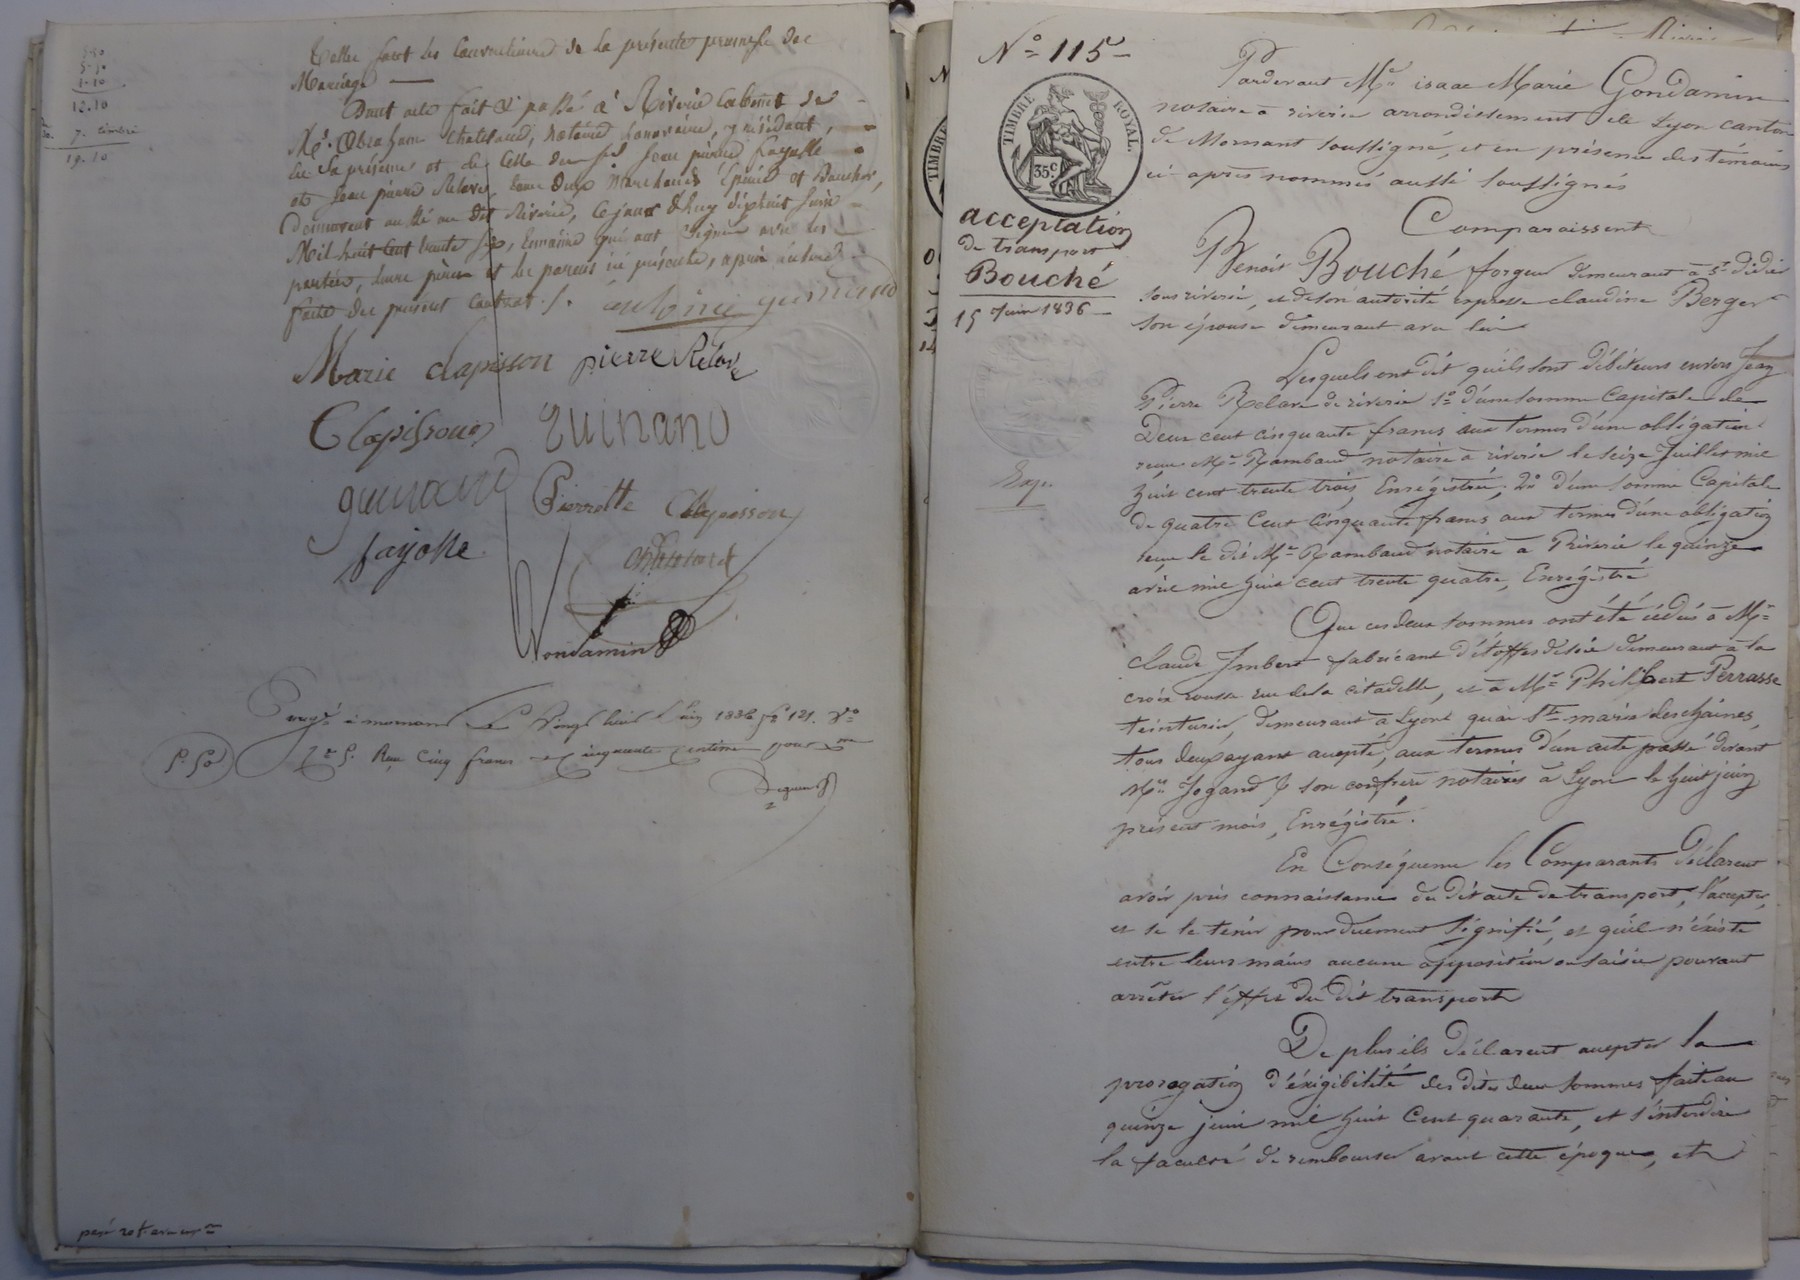 5.50
5.50
1.10
12.10
7. timbre
19.10
Telles sont les Conventions de la présente promesse de
Mariage
Dont acte fait & passé à Riverie Cabinet de
Me. Abraham Chatelard, notaire honoraire, y résidant,
en sa présence et de celle des srs Jean pierre fayolle
et Jean pierre Relave, tous deux Marchands Epicier et Boucher,
Demeurant au dit Riverie, Cejourd'huy dixhuit Juin
Mil huit Cent trente six, qui ont signé avec les
parties, leurs pères et les parents ici présents, après lecture
faite du présent Contrat ./. antoine guinand
Marie clapisson pierre Relave
Clapisson guinand
guinand Pierrette Clapisson
fayolle Chatelard
Gondamin
Enregé à mornant le Vingt huit Juin 1836 fo 121. Vo
Ce 5. Reçu Cinq francs Cinquante Centimes pour me
5.50
No 115
TIMBRE ROYAL.
35c
acceptation
de transport
Bouché
15 Juin 1836
Pardevant Me isaac Marie Gondamin
notaire à riverie arrondissement de Lyon canton
de Mornant soussigné, et en présence des témoins
ci-après nommés aussi soussignés
Comparaissent
Benoit Bouché forgeur demeurant à St didier
sous riverie, et de son autorité expresse claudine Berger
son épouse demeurant avec lui
Lesquels ont dit qu'ils sont débiteurs envers Jean
Pierre Relave de riverie 1o d'une somme Capitale de
Deux cent cinquante francs aux termes d'une obligation
reçue Me Rambaud notaire à riverie le seize Juillet mil
huit cent trente trois, Enregistrée; 2o d'une somme Capitale
de quatre Cent Cinquante francs aux termes d'une obligation
reçue le dit Me Rambaud notaire à Riverie le quinze
avril mil huit cent trente quatre, Enregistré
Que ces deux sommes ont été cédées à Mr
claude Imbert fabricant d'étoffes de soie demeurant à la
croix rousse rue de la citadelle, et à Mr Philibert Perrasse
teinturier, demeurant à Lyon quai Ste marie des chaines,
tous deux ayant accepté, aux termes d'un acte passé devant
Me Jogand & son confrere notaires à Lyon le huit juin
présent mois, Enregistré.
En Conséquence les Comparants déclarent
avoir pris connaissance du dit acte de transport, l'accepter,
et se le tenir pour duement signifié, et qu'il n'éxiste
entre leurs mains aucune opposition ou saisie pouvant
arrêter l'effet du dit transport
De plus ils déclarent accepter la
prorogation d'éxigibilité des dites deux sommes fait au
quinze juin mil huit Cent quarante, et s'interdire
la faculté de rembourser avant cette époque, et